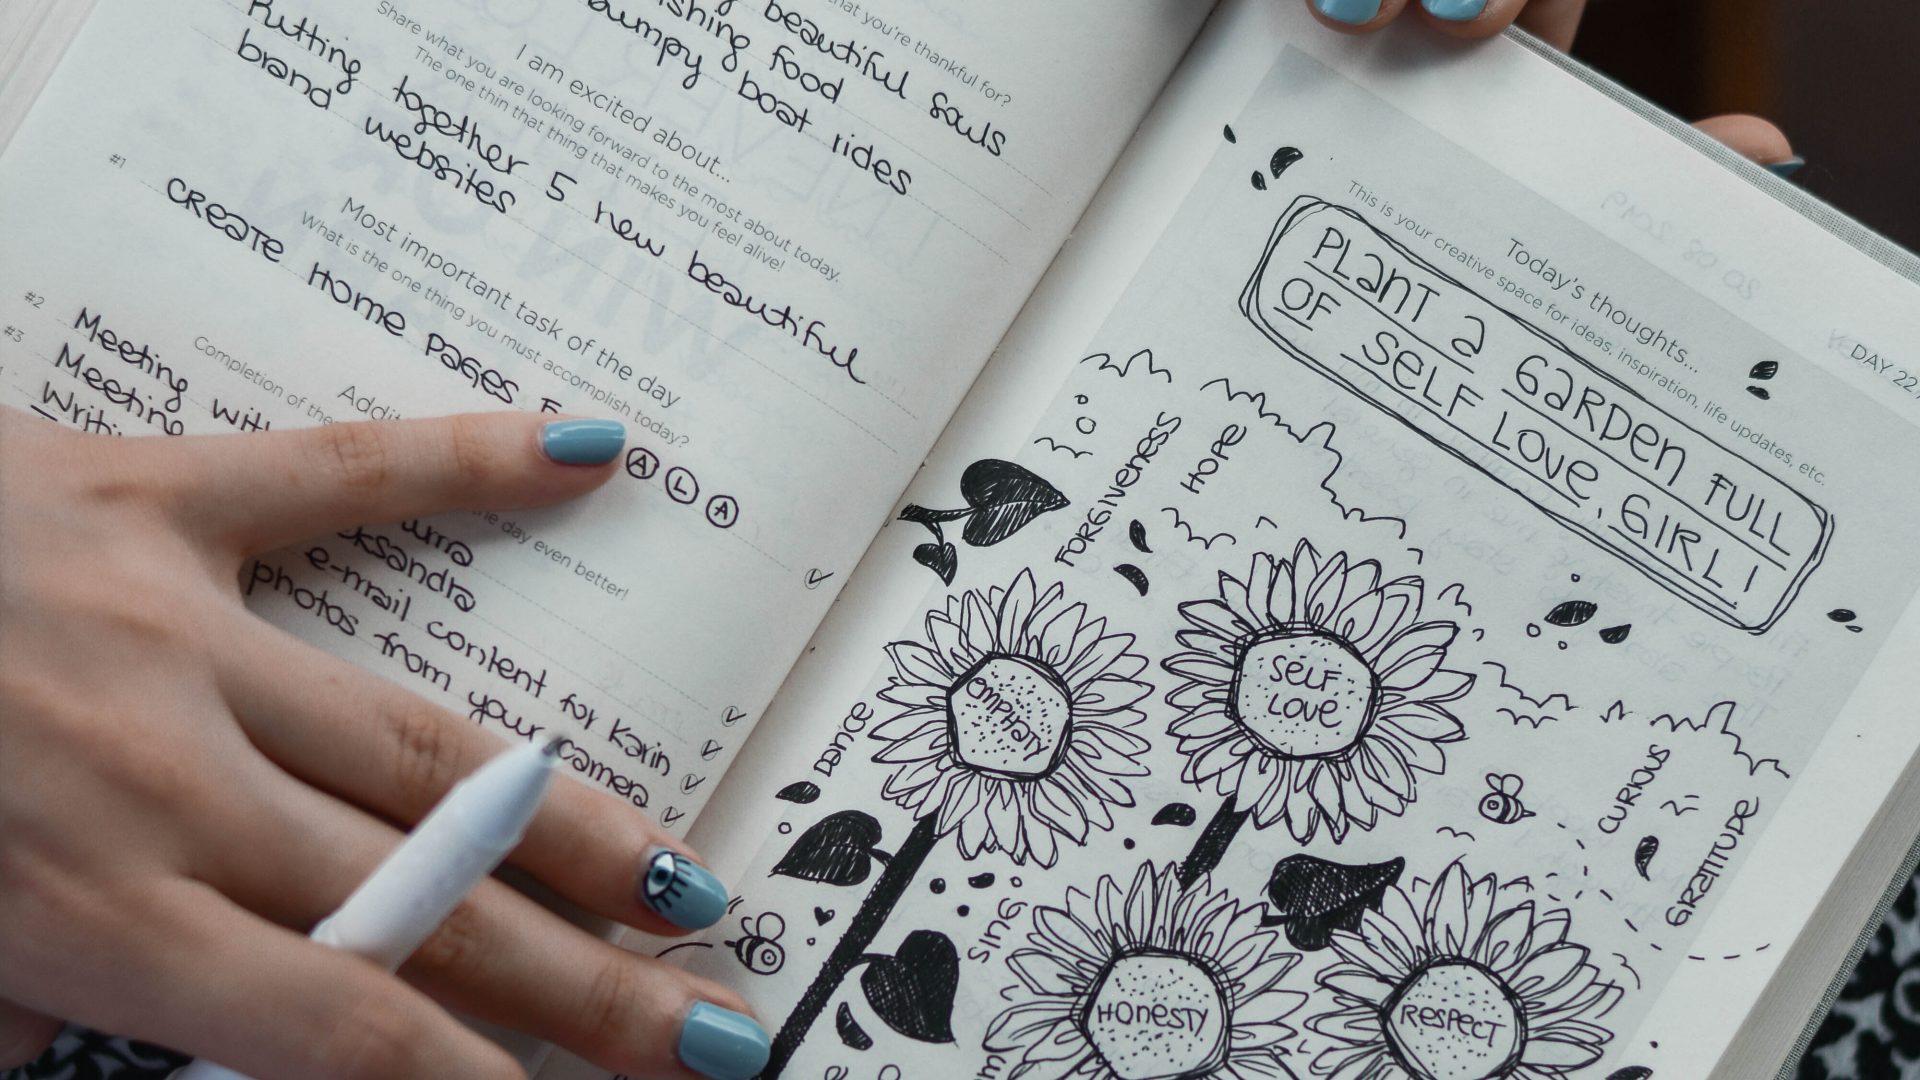 that you're thankful for?
beautiful souls
food
bumpy boat rides
I am excited about...
Share what you are looking forward to the most about today.
The one thing that thing that makes you feel alive!
Putting together 5 new beautiful
brand websites
Most important task of the day
What is the one thing you must accomplish today?
#1
CREATE HOME PAGES
A L A
Completion of the
the day even better!
#2
Meeting with
#3
Meeting
ksandra
e-mail content for Karin
photos from your camera
DAY 22
Today's thoughts...
This is your creative space for ideas, inspiration, life updates, etc.
PLANT A GARDEN FULL
OF SELF LOVE, GIRL!
FORGIVENESS
HOPE
EMPHATY
SELF
LOVE
DANCE
CURIOUS
GRATITUDE
SING
HONESTY
RESPECT